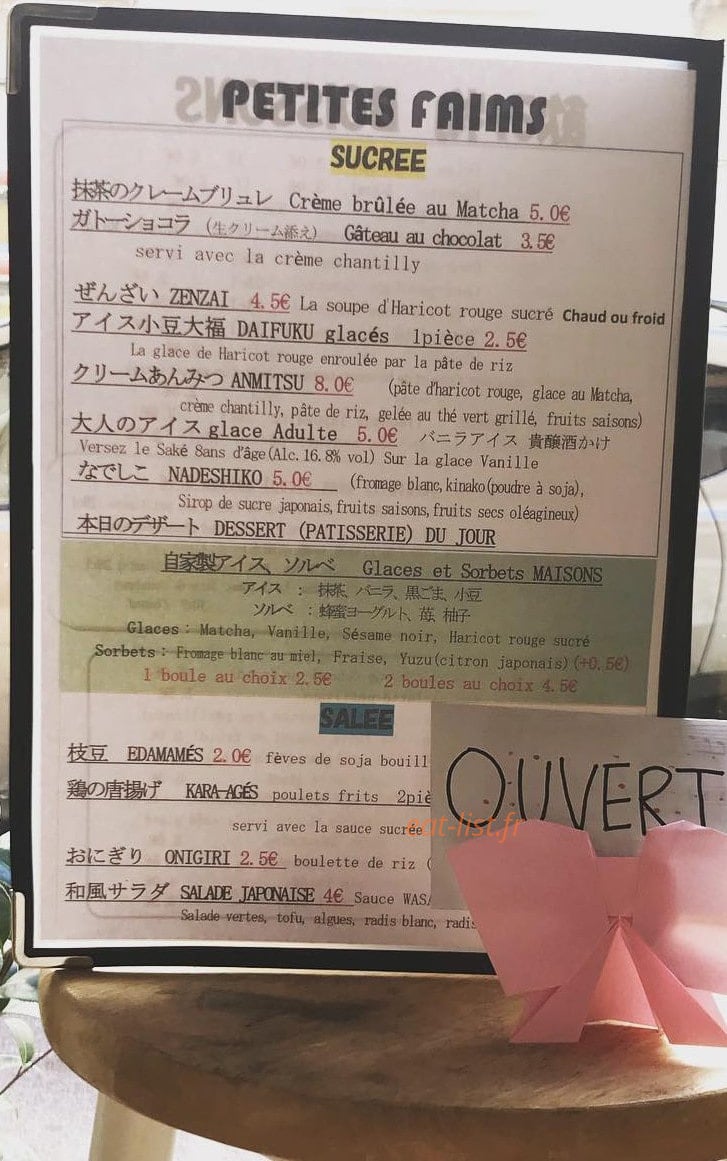 PETITES FAIMS
SUCREE
抹茶のクレームブリュレ Crème brûlée au Matcha 5.0€
ガトーショコラ (生クリーム添え) Gâteau au chocolat 3.5€
servi avec la crème chantilly
ぜんざい ZENZAI 4.5€ La soupe d'Haricot rouge sucré Chaud ou froid
アイス小豆大福 DAIFUKU glacés 1pièce 2.5€
La glace de Haricot rouge enroulée par la pâte de riz
クリームあんみつ ANMITSU 8.0€ (pâte d'haricot rouge, glace au Matcha,
crème chantilly, pâte de riz, gelée au thé vert grillé, fruits saisons)
大人のアイス glace Adulte 5.0€ バニラアイス 貴醸酒かけ
Versez le Saké 8ans d'âge(Alc. 16.8% vol) Sur la glace Vanille
なでしこ NADESHIKO 5.0€ (fromage blanc, kinako(poudre à soja),
Sirop de sucre japonais, fruits saisons, fruits secs oléagineux)
本日のデザート DESSERT (PATISSERIE) DU JOUR
自家製アイス、ソルベ Glaces et Sorbets MAISONS
アイス : 抹茶、バニラ、黒ごま、小豆
ソルベ : 蜂蜜ヨーグルト、苺、柚子
Glaces : Matcha, Vanille, Sésame noir, Haricot rouge sucré
Sorbets : Fromage blanc au miel, Fraise, Yuzu(citron japonais)(+0.5€)
1 boule au choix 2.5€ 2 boules au choix 4.5€
SALEE
枝豆 EDAMAMÉS 2.0€ fèves de soja bouill
鶏の唐揚げ KARA-AGÉS poulets frits 2piè
servi avec la sauce sucrée
おにぎり ONIGIRI 2.5€ boulette de riz (
和風サラダ SALADE JAPONAISE 4€ Sauce WASA
Salade vertes, tofu, algues, radis blanc, radis
OUVERT
eat-list.fr